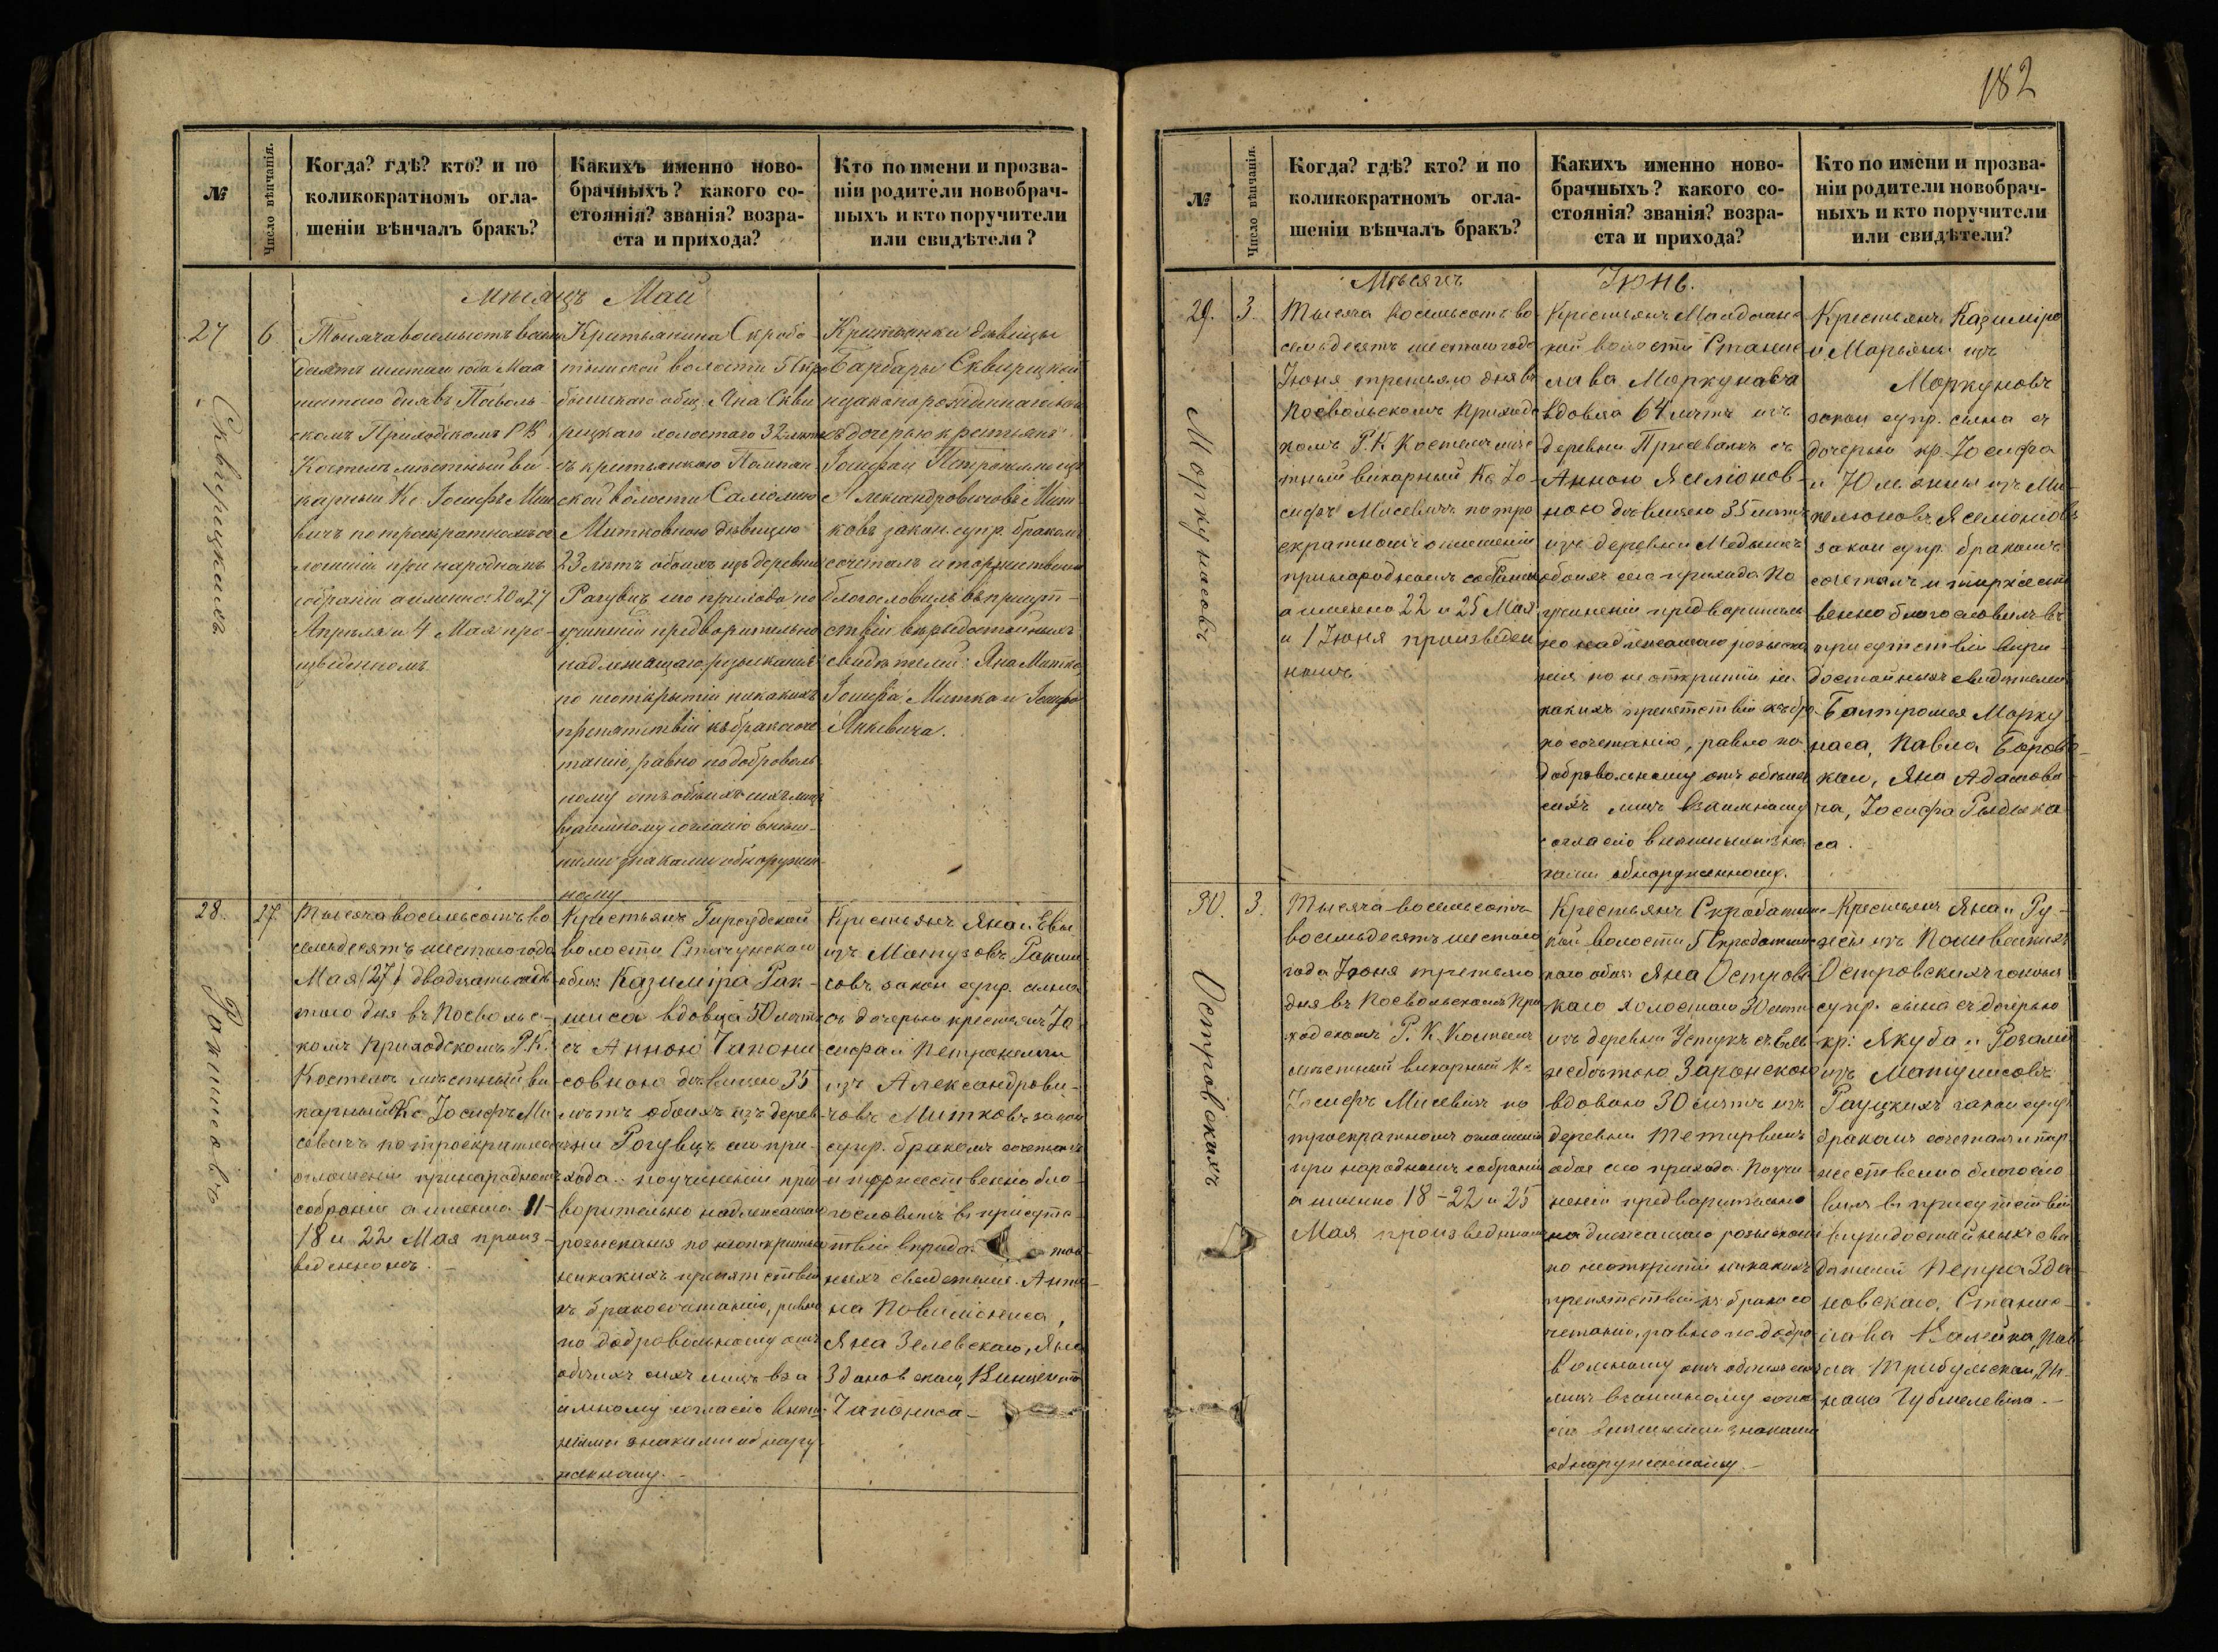 №
Число вѣнчанія.
Когда? гдѣ? кто? и по
коликократномъ огла-
шеніи вѣнчалъ бракъ?
Какихъ именно ново-
брачныхъ? какого со-
стоянія? званія? возра-
ста и прихода?
Кто по имени и прозва-
ніи родители новобрач-
ныхъ и кто поручители
или свидѣтели?
Мѣсяцъ Май
27
6
Сквирецкихъ
Тысяча восемьсотъ восемь
десятъ шестаго года Мая
шестаго дня въ Посволь-
скомъ Приходскомъ Р К
Костелѣ мѣстный ви-
карный Кс. Іосифъ Мисе
вичъ по троекратномъ ог
лашеніи при народномъ
собраніи а именно: 20 и 27
Апрѣля и 4 Мая про-
изведенномъ
Крестьянина Скробо
тишской волости
общ. Яна Скви
рецкаго холостаго 32 лѣтъ
съ крестьянкою Помпян
ской волости Саломею
Митковною дѣвицею
23 лѣтъ обоихъ изъ деревни
Рагувцъ сего прихода по
учиненіи предварительно
надлежащаго розысканія
по неоткрытіи никакихъ
препятствій къ бракосоче
танію, равно по доброволь
ному отъ обѣихъ сихъ лицъ
взаимному согласію внѣш-
ними знаками обнаружен-
ному
Крестьянки дѣвицы
Барбары Сквирецкой
незаконорожденнаго сына
съ дочерью крестьянъ
Іосифа и Петронели изъ
Александровичовъ Мит-
ковъ закон. супр. бракомъ
сочеталъ и торжественно
благословилъ въ присут-
ствіи вѣридостойныхъ
свидѣтелей: Яна Митка,
Іосифа Митка и Іосифа
Янкевича.
28.
27.
Ракшисовъ
Тысяча восемьсотъ во
семьдесятъ шестого года
Мая (27) двадцать седь
мого дня въ Посволь-
комъ Приходскомъ Р.К.
Костелѣ мѣстный ви
карный Кс Іосифъ Ми
севичъ по троекратномъ
оглашеніи при народномъ
собраніи а именно 11-
18 и 22 Мая произ-
веденномъ. -
Крестьянъ Гирсудской
волости Стачунскаго
общ: Казиміра Рак-
шиса вдовца 50 лѣтъ
съ Анною Чапони
совною дѣвицею 35
лѣтъ обоихъ изъ дерев-
ни Рогувцъ сего при-
хода. по учиненіи пред
ворительно надлежащаго
розысканія по неоткрытіи
никакихъ препятствій
къ бракосочетанію, равно
по добровольному отъ
обѣихъ сихъ лицъ вза
имному согласію внѣш-
ними знаками обнару-
женному. -
Крестьянъ Яна и Евы
изъ Матузовъ Ракши-
совъ закон супр. сына
съ дочерью крестьянъ Іо
сифа и Петронели
изъ Александрови-
човъ Митковъ закон
супр. бракомъ сочеталъ
и торжественно бла-
гословилъ въ присутс-
твіи вѣридо стой-
ныхъ свидѣтелей. Анто-
на Повилюниса,
Яна Зелевскаго, Яна
Здановскаго, Винцента
Чапониса -
182
№
Число вѣнчанія.
Когда? гдѣ? кто? и по
коликократномъ огла-
шеніи вѣнчалъ бракъ?
Какихъ именно ново-
брачныхъ? какого со-
стоянія? званія? возра-
ста и прихода?
Кто по имени и прозва-
ніи родители новобрач-
ныхъ и кто поручители
или свидѣтели?
Мѣсяцъ Іюнь.
29.
3.
Моркунасовъ
Тысяча восемьсотъ во
семьдесятъ шестого года
Іюня третьяго дня въ
Посвольскомъ Приходс
комъ Р.К Костелѣ мѣс
тный викарный Кс Іо-
сифъ Мисевичъ по тро
екратномъ оглашеніи
при народномъ собраніи
а именно 22 и 25 Мая
и 1 Іюня произведен
номъ
Крестьянъ
кой волости Станис
лава Моркунаса
вдовца 64 лѣтъ изъ
деревни съ
Анною Ясемонов-
ною дѣвицею 35 лѣтъ
изъ деревни Медзикъ
обоихъ сего прихода по
учиненіи предваритель
но надлежащаго розыска
нія по не открытіи ни
какихъ препятствій къ бра
ко сочетанію, равно по
добровольному отъ обѣихъ
сихъ лицъ взаимному
согласію внѣшными зна
ками обнаруженному.
Крестьянъ Казиміра
и Марьяны изъ
Моркуновъ
закон супр. сына съ
дочерью кр. Іосифа
и Юліянны изъ Ми
Ясемоновъ
закон супр. бракомъ
сочеталъ и торжест
венно благословилъ въ
присутствіи вѣри
достойныхъ свидѣтелей
Балтромея Морку
наса, Павла Боровс-
каго, Яна Адамови
ча, Іосифа Рыдыка
са.
30.
3.
Островскихъ
Тысяча восемьсотъ
восемьдесятъ шестого
года Іюня третьяго
дня въ Посвольскомъ При
ходскомъ Р. К. Костелѣ
мѣстный викарный Кс
Іосифъ Мисевичъ по
троекратномъ оглашеніи
при народномъ собраніи
а именно 18 - 22 и 25
Мая произведенномъ
Крестьянъ Скроботишс
кой волости
каго общ: Яна Островс
каго холостаго 30 лѣтъ
изъ деревни Устукъ съ Ель
жебѣтою Заронскою
вдовою 30 лѣтъ изъ
деревни Тетирвинъ
обоя сего прихода. По учи
неніи предварительно
надлежащаго розысканія
по неоткрытіи никакихъ
препятствій къ бракосо
четанію, равно по добро
вольному отъ обѣихъ сихъ
лицъ взаимному согла
сію внѣшними знаками
обнаруженному. -
Крестьянъ Яна и Ру-
жи изъ
Островскихъ законн
супр. сына съ дочерью
кр: Якуба и Розаліи
изъ Матулисовъ
Рауцкихъ закон супр
бракомъ сочеталъ и тор
жественно благосло
вилъ въ присутствіи
вѣридостойныхъ сви
дѣтелей Петра Зда
новскаго, Станис-
лава Валейка, Пав
ла Трибульскаго, Иг
наца Губмелевича. -